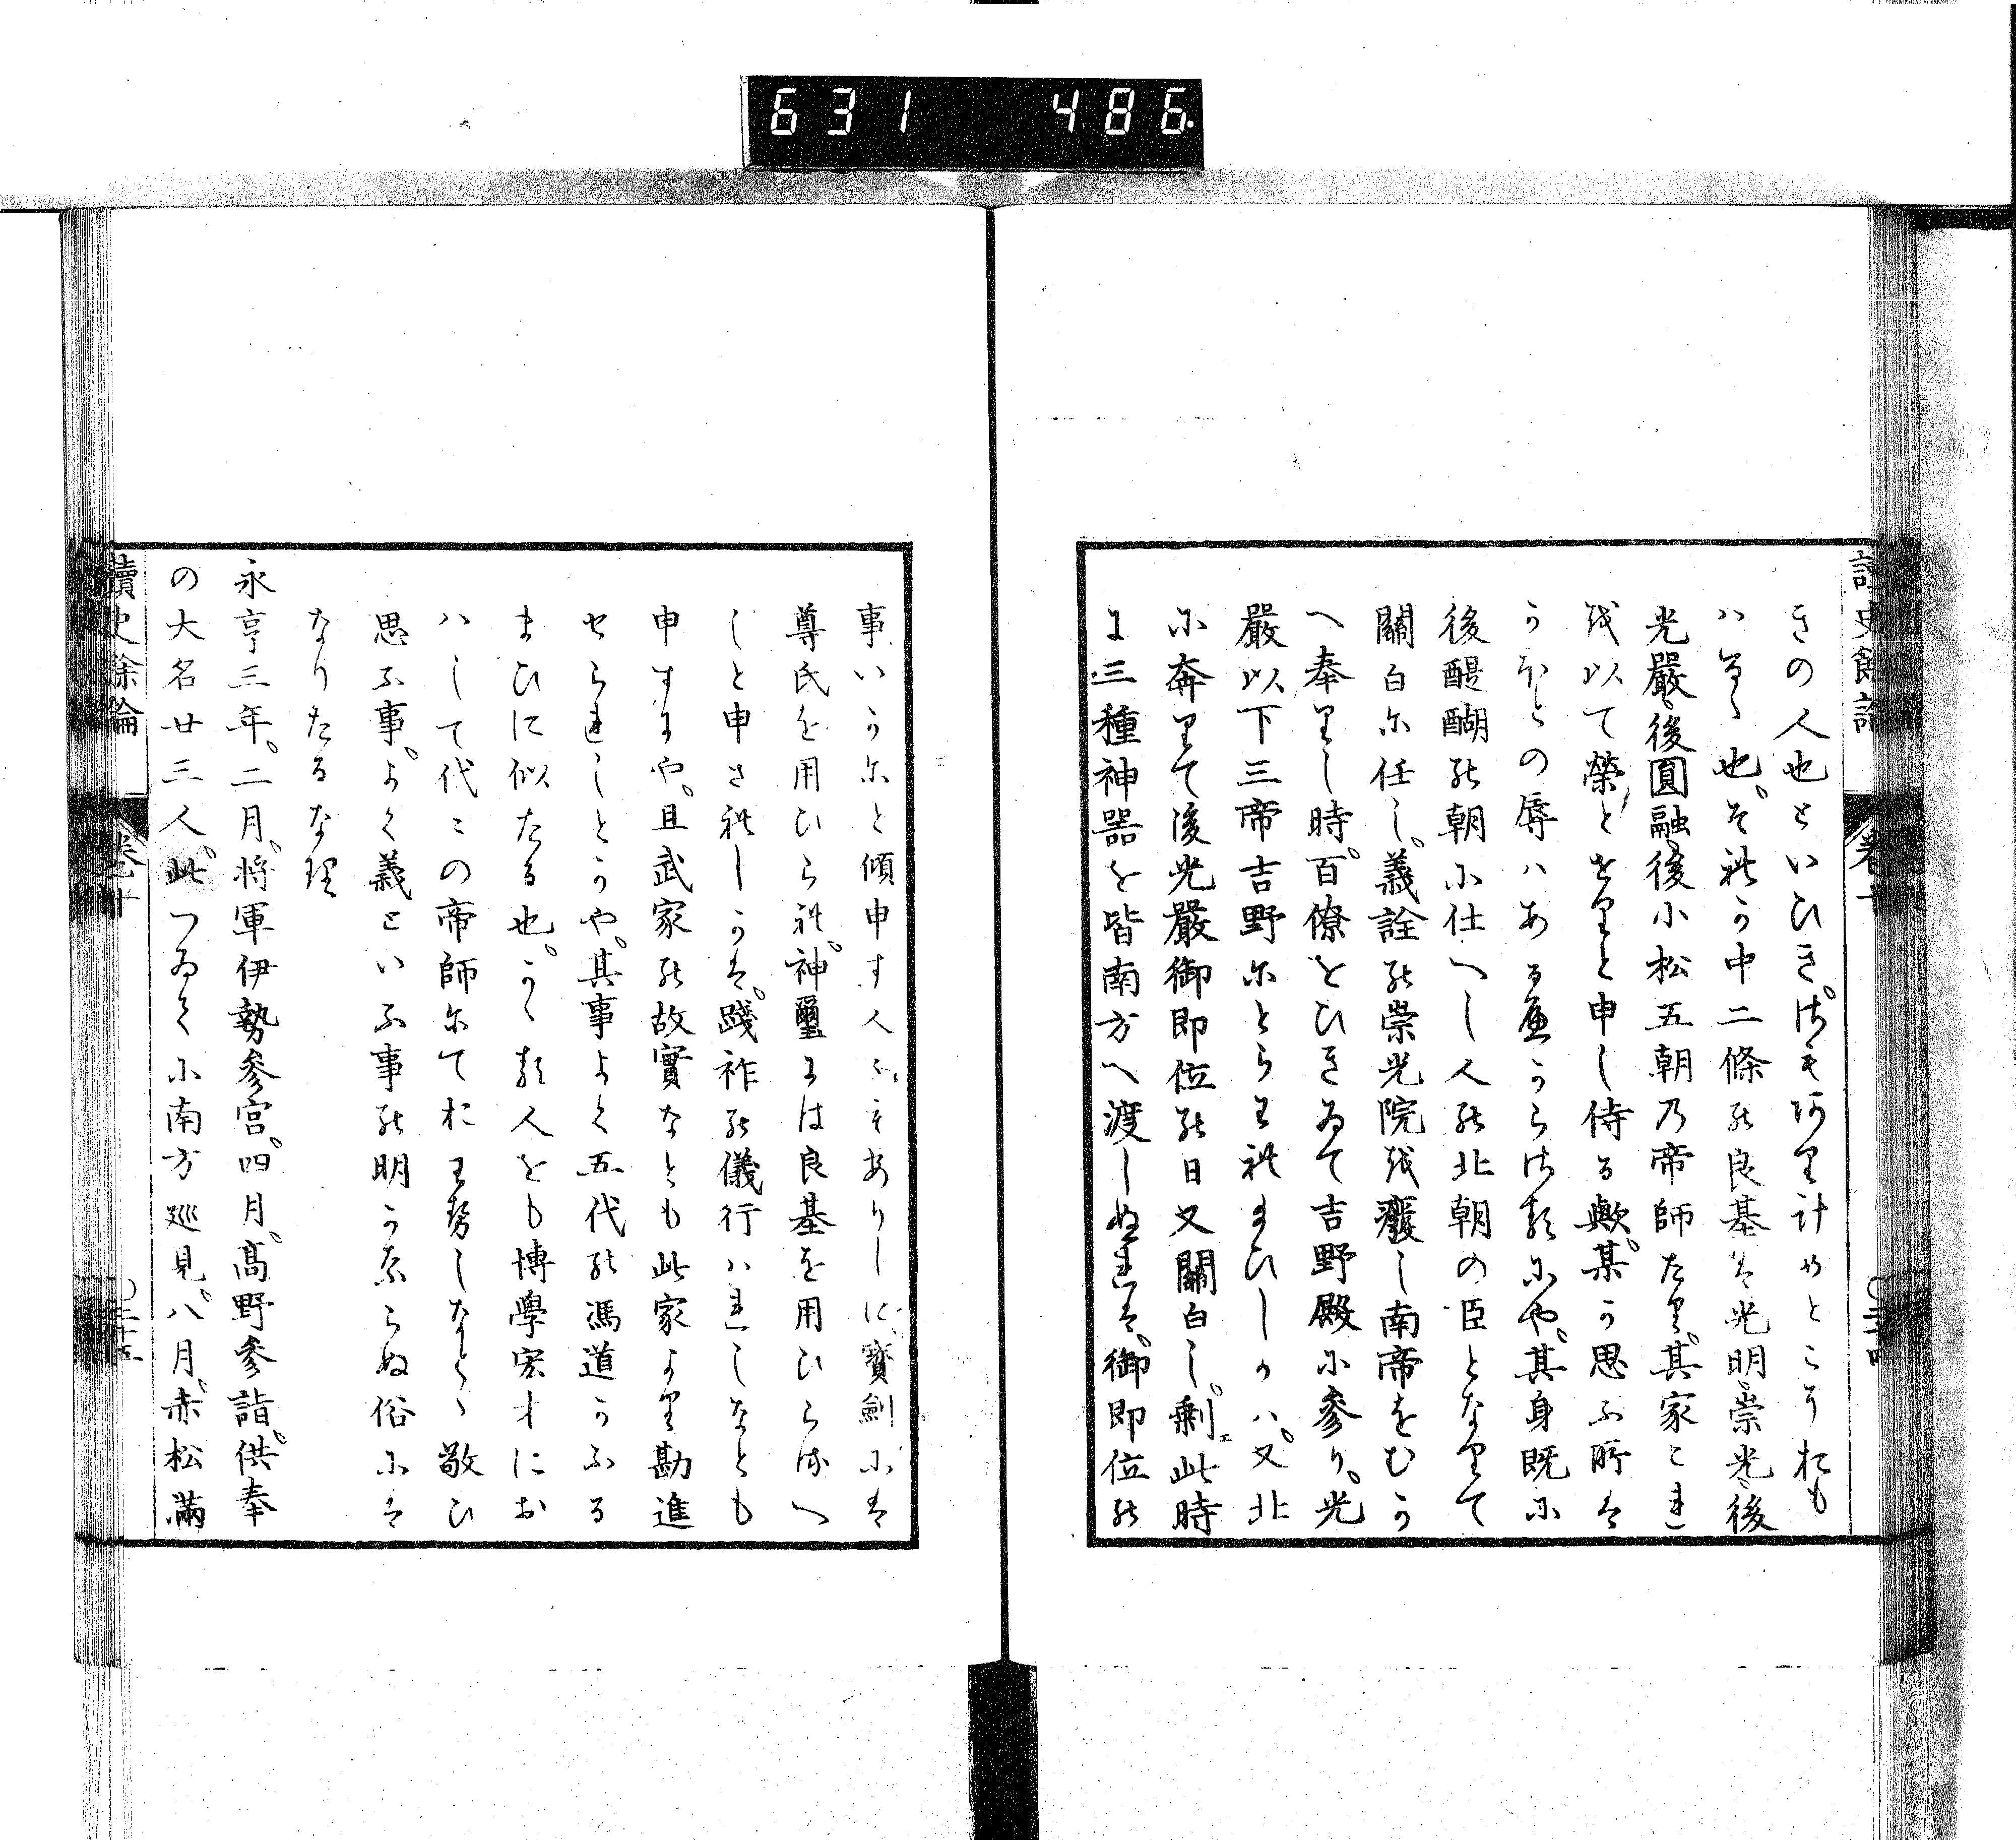 631 486.
讀史餘論 卷十 〇三十四
きの人也といひき。はゝあり計のところおも
ハるゝ也。それか中二條の良基は光明崇光後
光嚴後圓融後小松五朝乃帝師たり。其家これ
を以て榮とせりと申し侍る歟。某か思ふ所は
かほとの辱ハあるへからさるにや。其身既に
後醍醐の朝に仕へし人の北朝の臣となりて
關白に任し。義詮の崇光院を癈し南帝をむか
へ奉りし時。百僚をひきゐて吉野殿に參り。光
嚴以下三帝吉野にとらはれまひしかハ。又北
に奔りて後光嚴御即位の日又關白し。剩此時
は三種神器を皆南方へ渡しぬれは。御即位の
事いかにと傾申す人々もありしに。寳劍には
尊氏を用ひられ。神璽には良基を用ひらるへ
しと申されしかは。踐祚の儀行ハれしなとも
申すにや。且武家の故實なとも此家より勘進
せられしとかや。其事よく五代の馮道かふる
まひに似たる也。かゝる人をも博學宏才にお
ハして代々の帝師にておはせしなとゝ敬ひ
思ふ事。よく義といふ事の明かならぬ俗には
なりたるなり
永亨三年。二月。將軍伊勢參宮。四月。髙野參詣。供奉
の大名廿三人。此つゐてに南方巡見。八月。赤松滿
讀史餘論 卷十 〇三十五